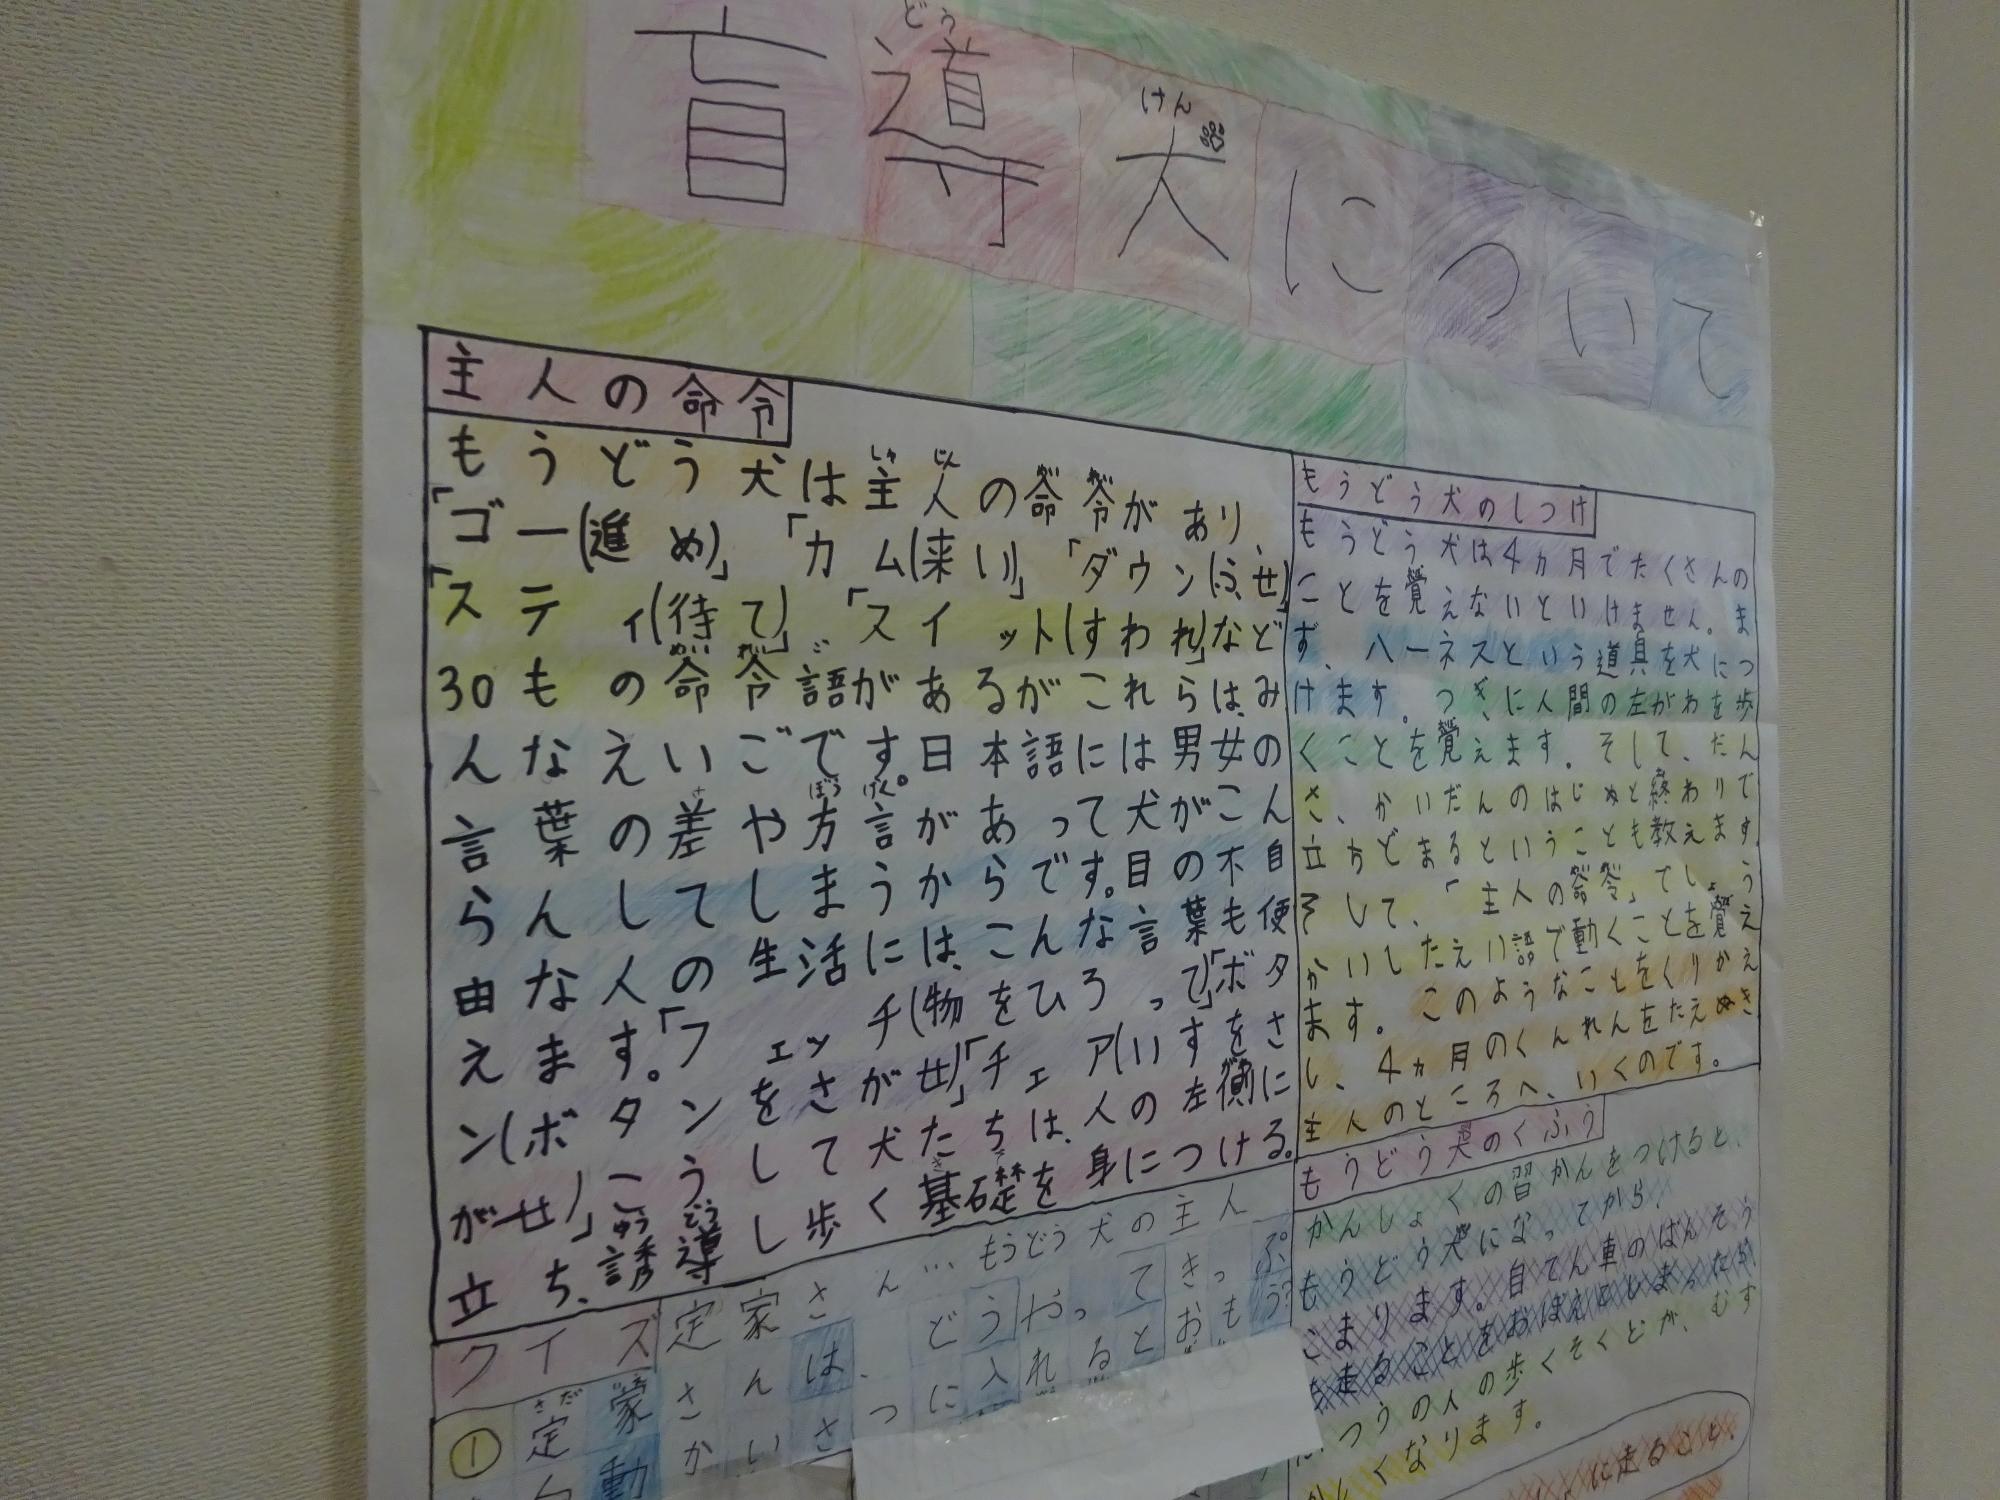 盲導犬について
主人の命令
もうどう犬は主人の命令があり、
「ゴー(進め)」「カム(来い)」「ダウン(ふせ)」
「スティ(待て)」「スイット(すわれ)」など
30もの命令語があるがこれらは、み
んなえいごです。日本語には男女の
言葉の差や方言があって犬がこん
らんしてしまうからです。目の不自
由な人の生活には、こんな言葉も便
えます。「フェッチ(物をひろって)」「ボタ
ン(ボタンをさがせ)」「チェア(いすをさ
がせ)」こうして犬たちは、人の左側に
立ち、誘導し歩く基礎を身につける。
もうどう犬のしつけ
もうどう犬は4ヵ月でたくさんの
ことを覚えないといけません。ま
ず、ハーネスという道具を犬につ
けます。つぎに人間の左がわを歩
くことを覚えます。そして、だん
さ、かいだんのはじめと終わりで
立ちどまるということも教えます。
そして、「主人の命令」でしょう
かいしたえい語で動くことを覚え
ます。このようなことをくりかえ
し、4ヵ月のくんれんをたえぬき
主人のところへ、いくのです。
もうどう犬のくふう
かんしょくの習かんをつけると、
もうどう犬になってから、
こまります。自てん車のばんそう
を走ることをおぼえてしまったが
ふつうの人の歩くそくどが、むず
かしくなります。
に走ること。
クイズ
定家さん…もうどう犬の主人
①